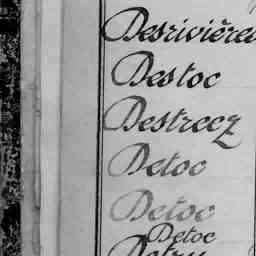 Desrivières
Destoc
Destrecq
Detoc
Detoc
Detoc
Detry